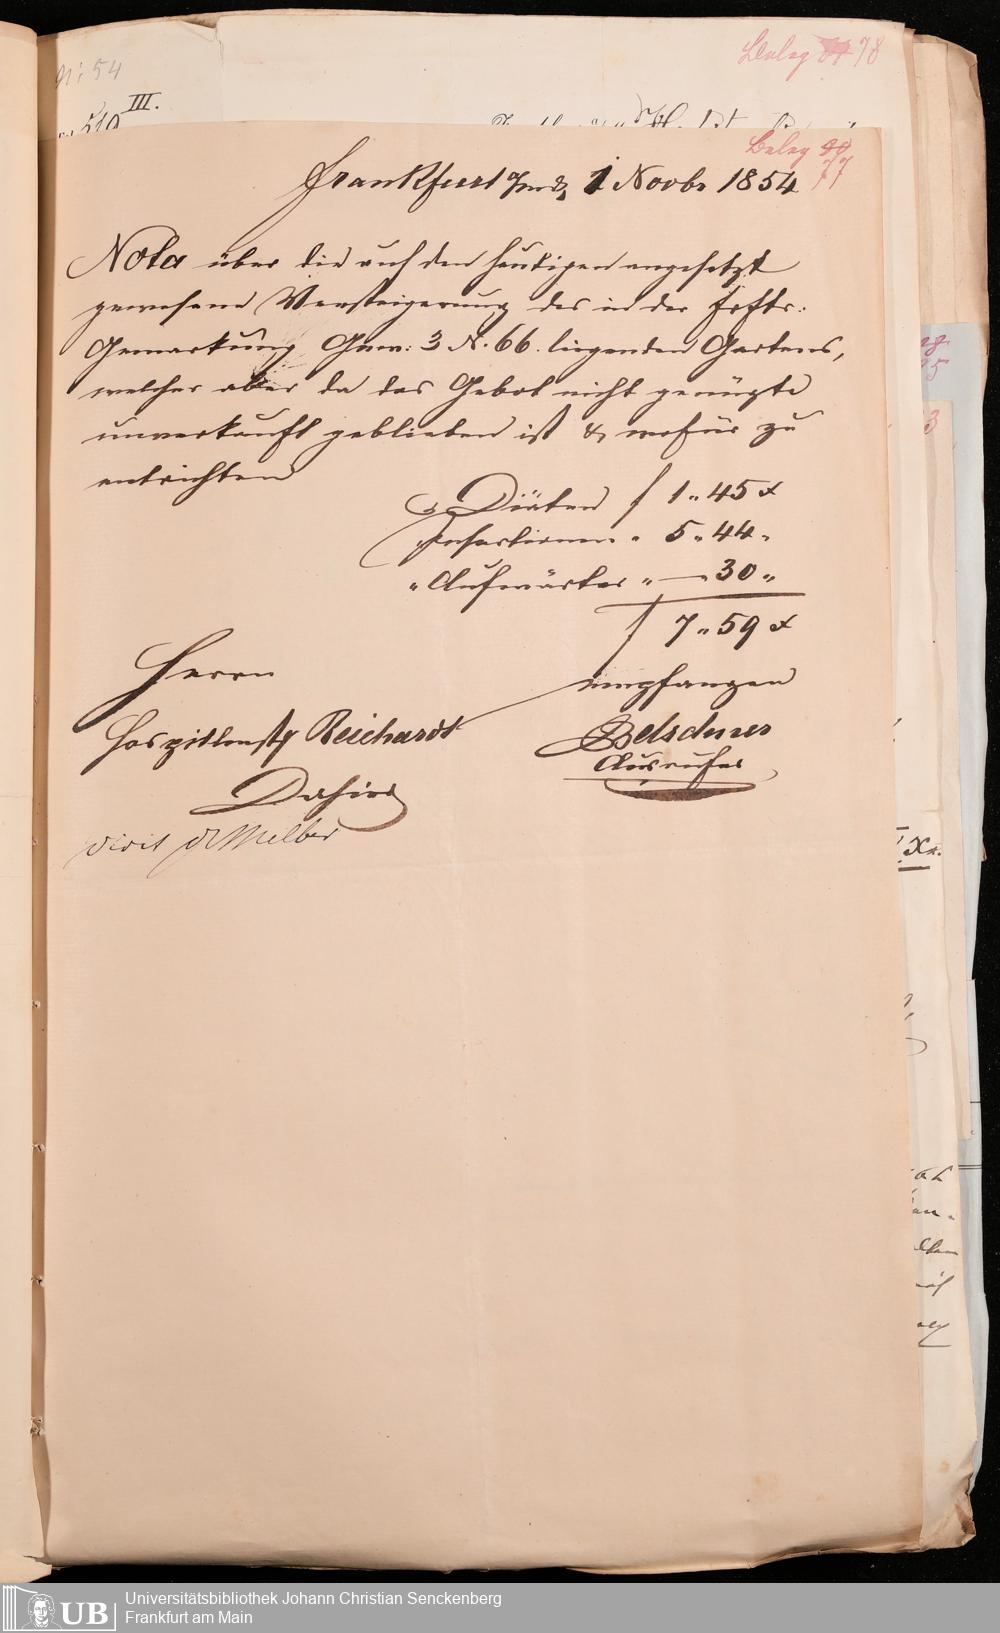 Nr 54
Beleg 78
III.
510
Beleg
77
Frankfurt a/M d. 1 Novbr 1854
Nota über die auf den heutigen angesetzt
gewesene Versteigerung des in der Frftr:
Gemarkung Gew: 3 N. 66. liegenden Gartens,
welcher aber da das Gebot nicht genügte
unverkauft geblieben ist & wofür zu
entrichten
Diäten f 1 „ 45 x
Insertionen „ 5 „ 44 „
„ Aufwärter „ — „ 30 „
f 7 „ 59 x
Herrn
empfangen
Hospitalmstr Reichardt
Belschner
Ausrufer
Dahier
vidit Dr Melber
Xr.
UB
Universitätsbibliothek Johann Christian Senckenberg
Frankfurt am Main